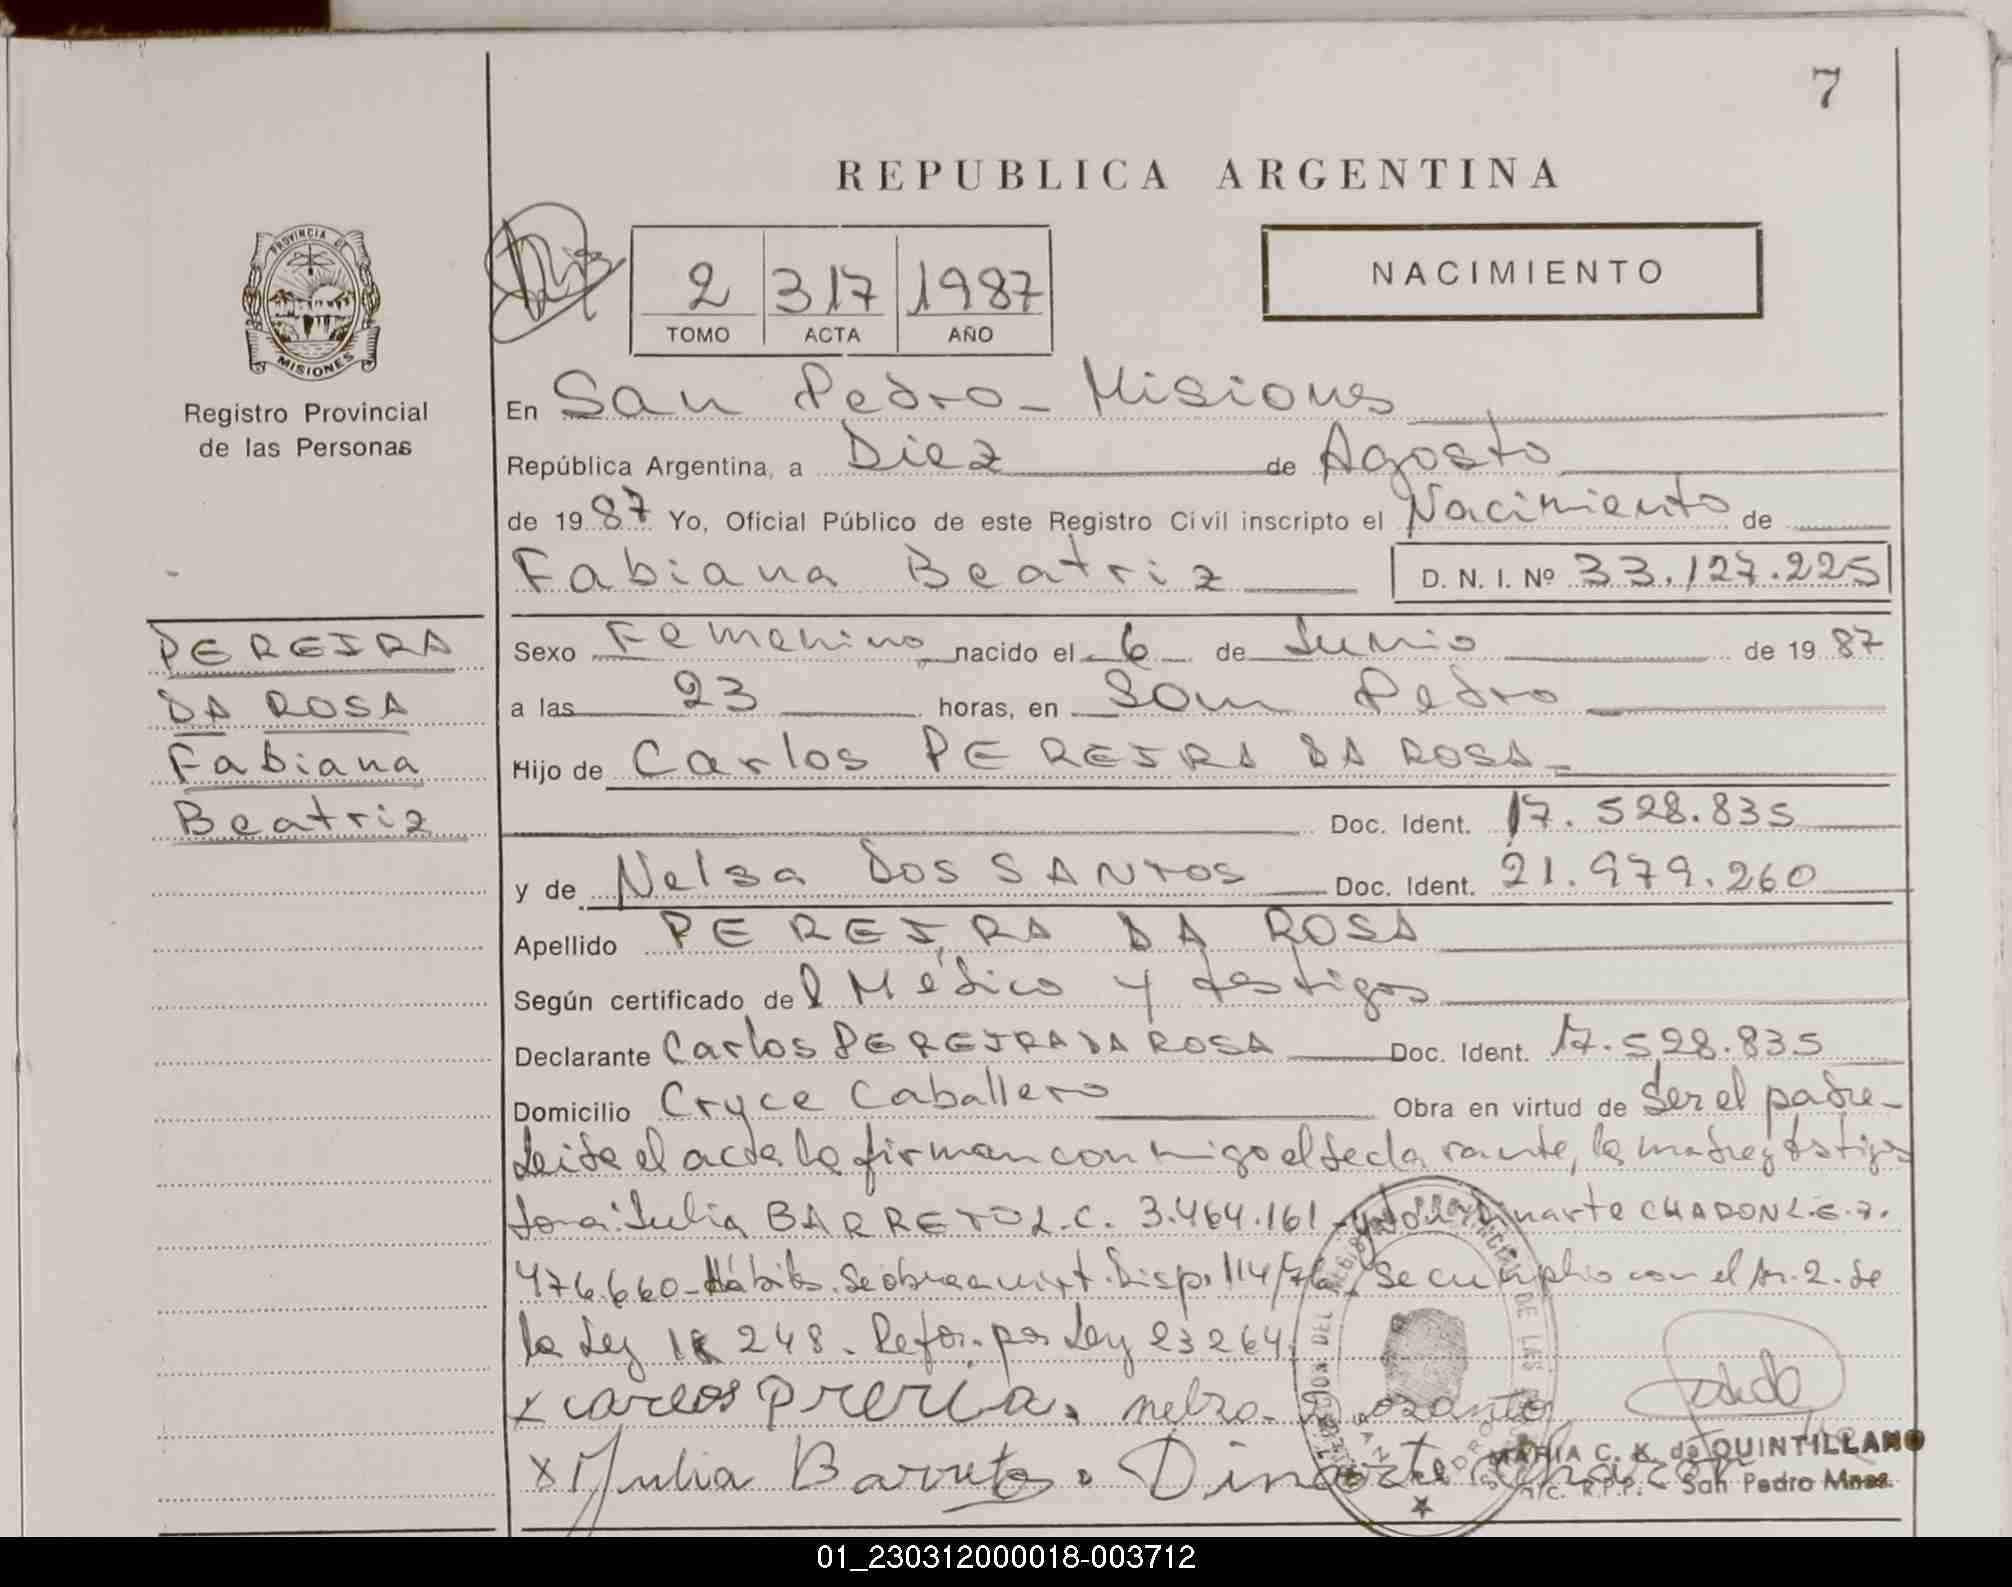 7
REPUBLICA ARGENTINA
PROVINCIA DE
MISIONES
Registro Provincial
de las Personas
2 317 1987
TOMO ACTA AÑO
NACIMIENTO
En San Pedro - Misiones
República Argentina, a Diez de Agosto
de 1987 Yo, Oficial Público de este Registro Civil inscripto el Nacimiento de
Fabiana Beatriz D. N. I. Nº 33.127.225
PEREIRA
DA ROSA
Fabiana
Beatriz
Sexo Femenino nacido el 6 de Junio de 1987
a las 23 horas, en San Pedro
Hijo de Carlos PEREIRA DA ROSA
Doc. Ident. 17.528.835
y de Nelsa DOS SANTOS Doc. Ident. 21.979.260
Apellido PEREIRA DA ROSA
Según certificado del Médico y testigos
Declarante Carlos PEREIRA DA ROSA Doc. Ident. 17.528.835
Domicilio Cryce Caballero Obra en virtud de Ser el padre-
Leida el acta la firman conmigo el declarante, la madre y testigos
Julia BARRETO L.C. 3.464.161 - CHADON L.E. 7.
476.660 - Hábiles. Disp. 114/76. Se cumplio con el Ar. 2. de
la Ley 248. Refor. por Ley 23264.
x carlos Prericia. nelza
x Julia Barreto. Dinarte
MARIA C. K. de QUINTILLANO
a/c. R.P.P. - San Pedro Mnes.
01_230312000018-003712